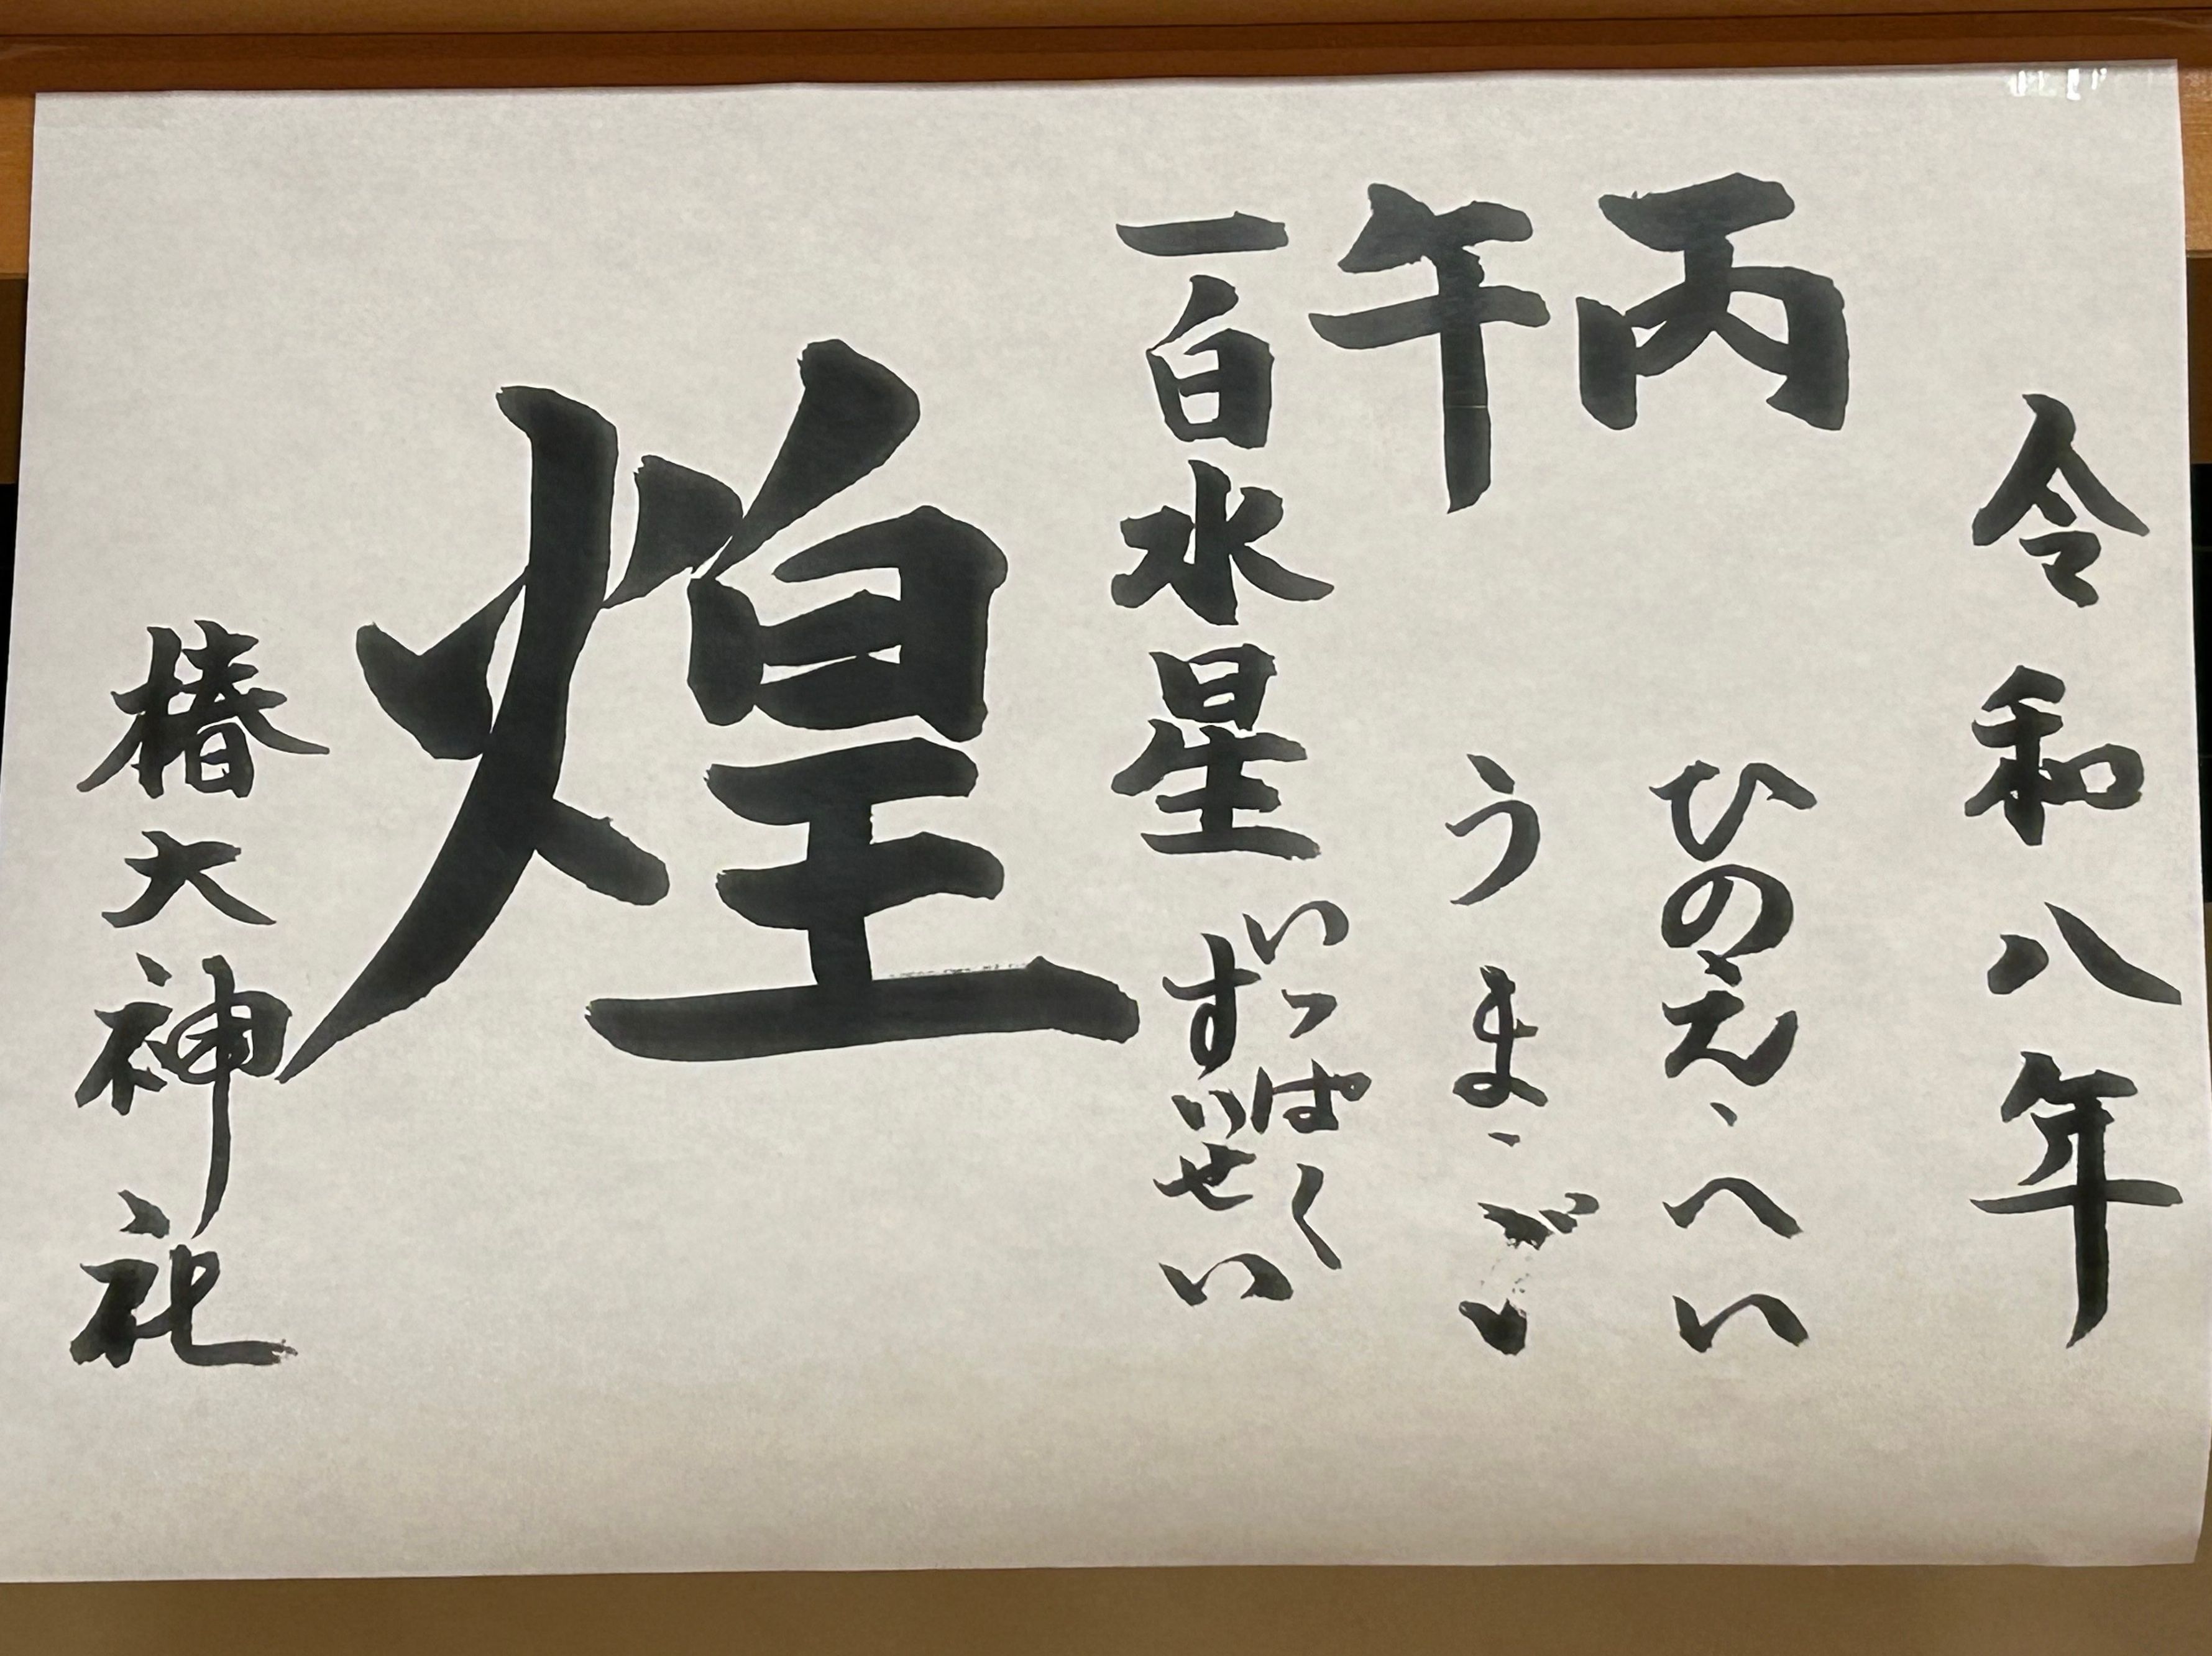 令和八年
丙 ひのえ、へい
午 うま、ご
一白水星 いっぱくすいせい
煌
椿大神社